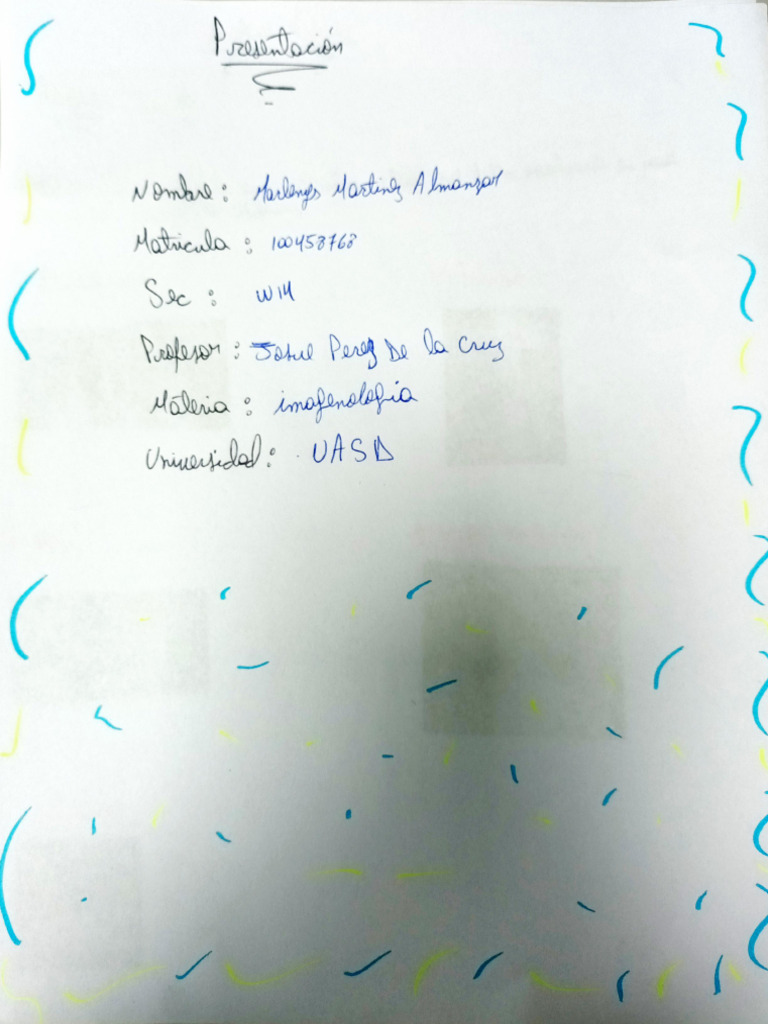 Presentación
Nombre: Marlenys Martinez Almanzar
Matricula: 100458768
Sec: W14
Profesor: Josue Perez De la Cruz
Materia: imagenologia
Universidad: UASD